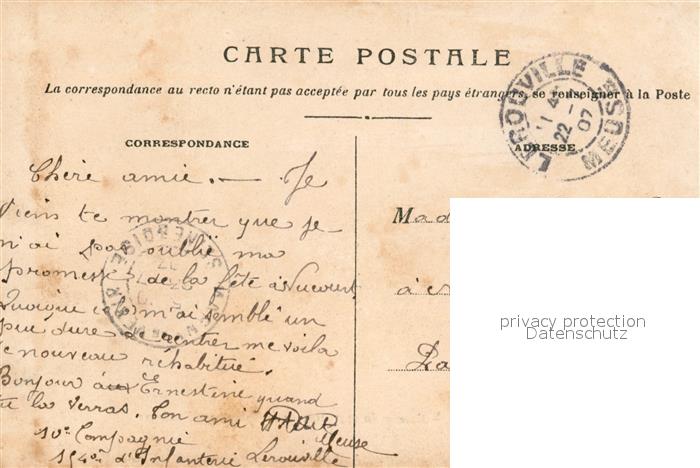 CARTE POSTALE
La correspondance au recto n'étant pas acceptée par tous les pays étrangers, se renseigner à la Poste
CORRESPONDANCE
ADRESSE
LEROUVILLE MEUSE
22 - 07
Chère amie. — Je
viens te montrer que je
n'ai pas oublié ma
promesse de la fête à Nucourt.
Quoique cela m'ai semblé un
peu dure de rentrer me voila
de nouveau réhabitué.
Bonjour à Ernestine quand
tu la verras. Ton ami
10e Compagnie
154e d'Infanterie Lerouville
Meuse
Mad
à
privacy protection
Datenschutz